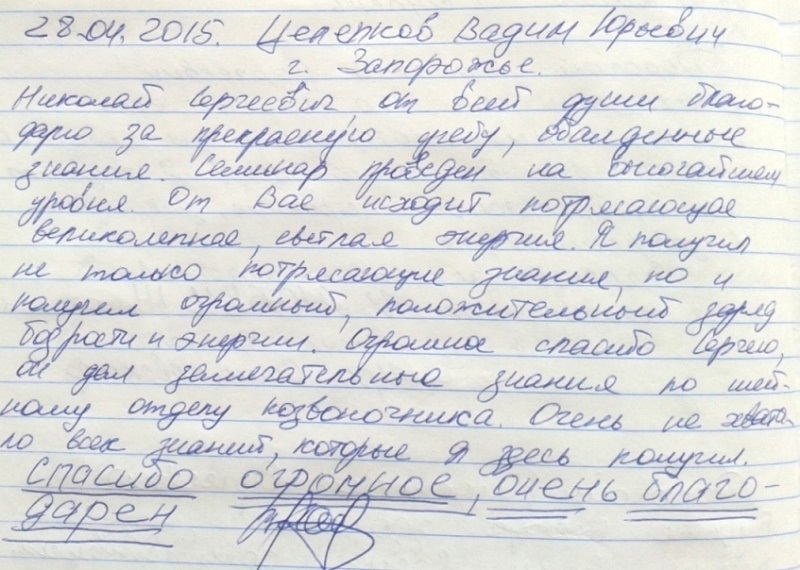 28.04.2015. Целепков Вадим Юрьевич
г. Запорожье.
Николай Сергеевич, от всей души благо-
дарю за прекрасную учебу, обалденные
знания. Семинар проведен на высочайшем
уровня. От Вас исходит потрясающая
великолепная, светлая энергия. Я получил
не только потрясающие знания, но и
получил огромный, положительный заряд
бодрости и энергии. Огромное спасибо Сергею,
он дал замечательные знания по шей-
ному отделу позвоночника. Очень не хвата-
ло всех знаний, которые я здесь получил.
Спасибо огромное, очень благо-
дарен